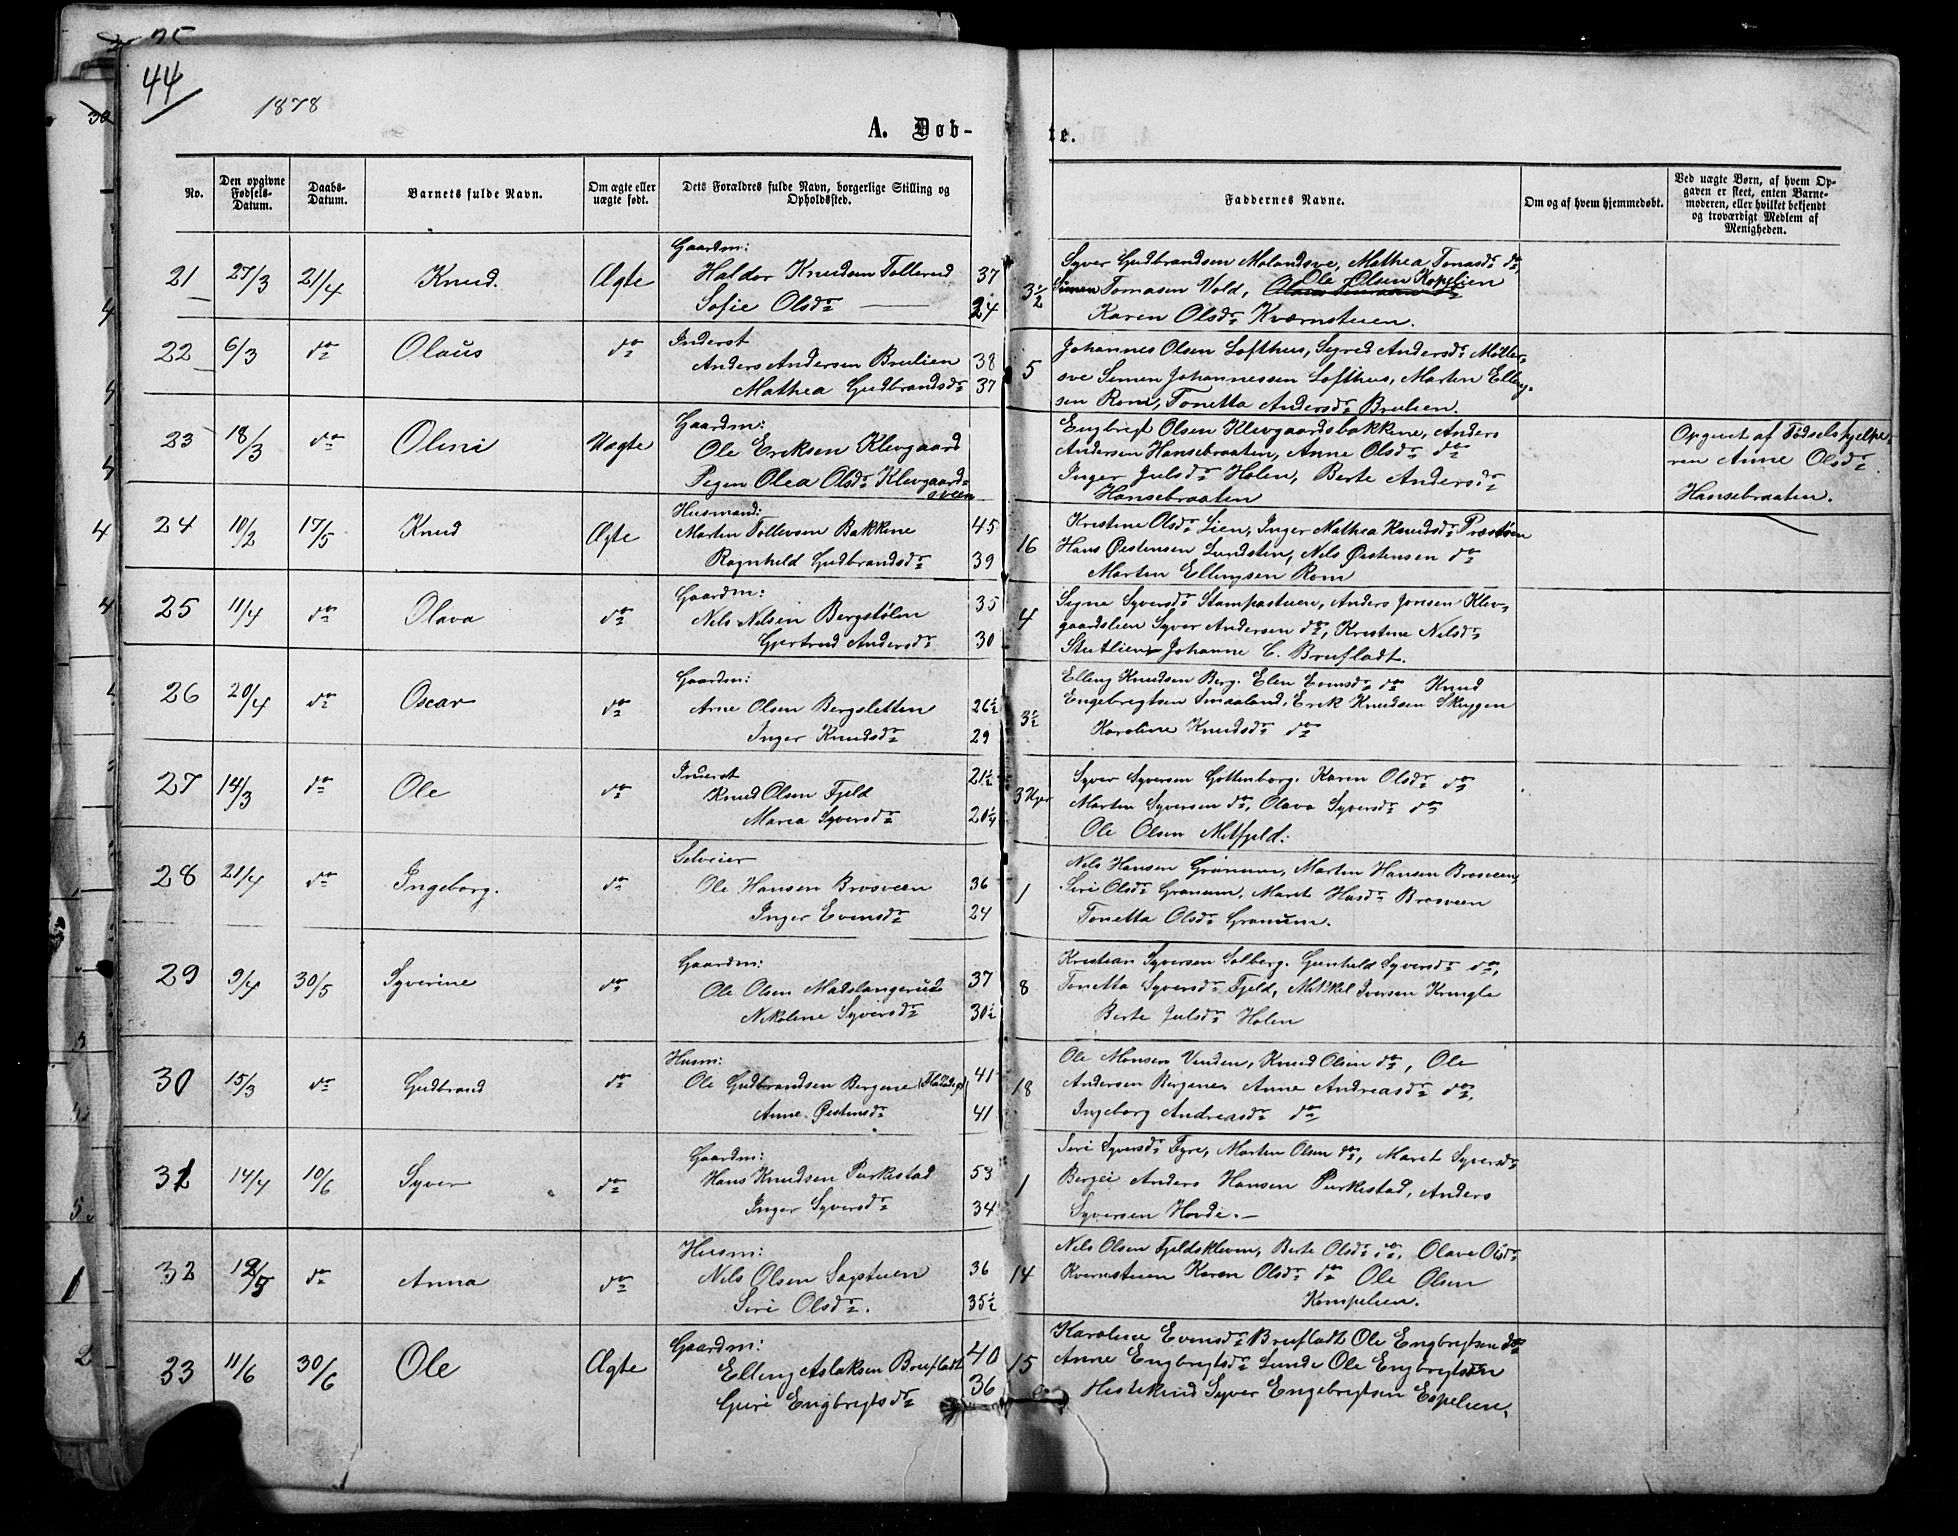 44
1878
A. Døb-
te.
No.
Den opgivne Fødsels-Datum.
Daabs-Datum.
Barnets fulde Navn.
Om ægte eller uægte født.
Dets Forældres fulde Navn, borgerlige Stilling og Opholdssted.
Faddernes Navne.
Om og af hvem hjemmedøbt.
Ved uægte Børn, af hvem Opgaven er skeet, enten Barnemoderen, eller hvilket bekjendt og troværdigt Medlem af Menigheden.
21 27/3 21/4 Knud. Ægte
Gaardm:
Haldor Knudsen Tollerud 37
Sofie Olsdr 24
3½
Syver Gudbrandsen Molandsve, Mathea Tomasdr do,
Simen Tomasen Vold, Ole Olsen Kopelien
Karen Olsdr Kværnstuen.
22 6/3 do Olaus do
Inderst
Anders Andersen Brulien 38
Mathea Gudbrandsdr 37
5
Johannes Olsen Lofthus, Sigrid Andersdr Møller-
sve Simen Johannessen Lofthus, Martin Elling-
sen Rom, Tonetta Andersdr Brulien.
23 18/3 do Olini Uægte
Gaardm:
Ole Eriksen Klevgaard
Pigen Olea Olsdr Klevgaards-
sveen
Engbregt Olsen Klevgaardsbakkene, Anders
Andersen Hansebraaten, Anne Olsdr do
Inger Julsdr Holen, Berte Andersdr
Hansebraaten
Opgivet af Fødselshjelpe-
ren Anne Olsdr
Hansebraaten.
24 10/2 17/5 Knud Ægte
Husmand:
Martin Tollevsen Bakkene 45
Ragnhild Gudbrandsdr 39
16
Kristine Olsdr Lien, Inger Mathea Knudsdr Præstøen
Hans Østensen Lundstin, Nils Østensen do
Martin Ellingsen Rom
25 11/4 do Olava do
Gaardm:
Nils Nilsen Bergstølen 35
Gjertrud Andersdr 30
4
Signe Syversdr Stampastuen, Anders Jonsen Klev-
gaardslien Syver Andersen do, Kristine Nilsdr
Stutlien Johanne C. Brufladt.
26 20/4 do Oscar do
Gaardm:
Arne Olsen Bergsletten 26½
Inger Knudsdr 29
3½
Elling Knudsen Berg. Elen Evensdr do Knud
Engebregtsen Smaaland, Erik Knudsen Skyggen
Karoline Knudsdr do
27 14/3 do Ole do
Inderst
Knud Olsen Fjeld 21½
Maria Syversdr 20¼
3 Uger
Syver Syversen Gottenborg. Karen Olsdr do
Martin Syversen do, Olava Syversdr do
Ole Olsen Mitfjeld.
28 21/4 do Ingeborg. do
Selveier
Ole Hansen Brosveen 36
Inger Evensdr 24
1
Nils Hansen Granum, Martin Hansen Brosveen,
Siri Olsdr Granum, Marit Hansdr Brosveen
Tonetta Olsdr Granum.
29 9/4 30/5 Syverine do
Gaardm:
Ole Olsen Madslangerud 37
Nikoline Syversdr 30½
8
Kristian Syversen Solberg. Gunhild Syversdr do,
Tonetta Syversdr Fjeld, Mikkel Iversen Kringle
Berte Julsdr Holen
30 15/3 do Gudbrand do
Husm:
Ole Gudbrandsen Bergene 41
Anne Østensdr 41
18
Ole Monsen Vinden, Knud Olsen do, Ole
Andersen Bergene, Anne Andreasdr do,
Ingeborg Andreasdr do
31 14/4 10/6 Syver do
Gaardm:
Hans Knudsen Purkestad 53
Inger Syversdr 34
1
Siri Syversdr Fyre, Martin Olsen do, Marit Syversdr
Bergei Anders Hansen Purkestad, Anders
Syversen Hovde. —
32 12/5 do Anna do
Husm:
Nils Olsen Sagstuen 36
Siri Olsdr. 35½
14
Nils Olsen Fjeldskleven, Berte Olsdr do, Olave Olsdr
Kvernstuen Karen Olsdr do Ole Olsen
Kompelien.
33 11/6 30/6 Ole Ægte
Gaardm:
Elling Aslaksen Brufladt 40
Guri Engbregtsdr 36
15
Karoline Evensdr Brufladt Ole Engbregtsen do
Anne Engbregtsdr Lunde Ole Engbregtsen
Hestekind Syver Engebregtsen Espelien.